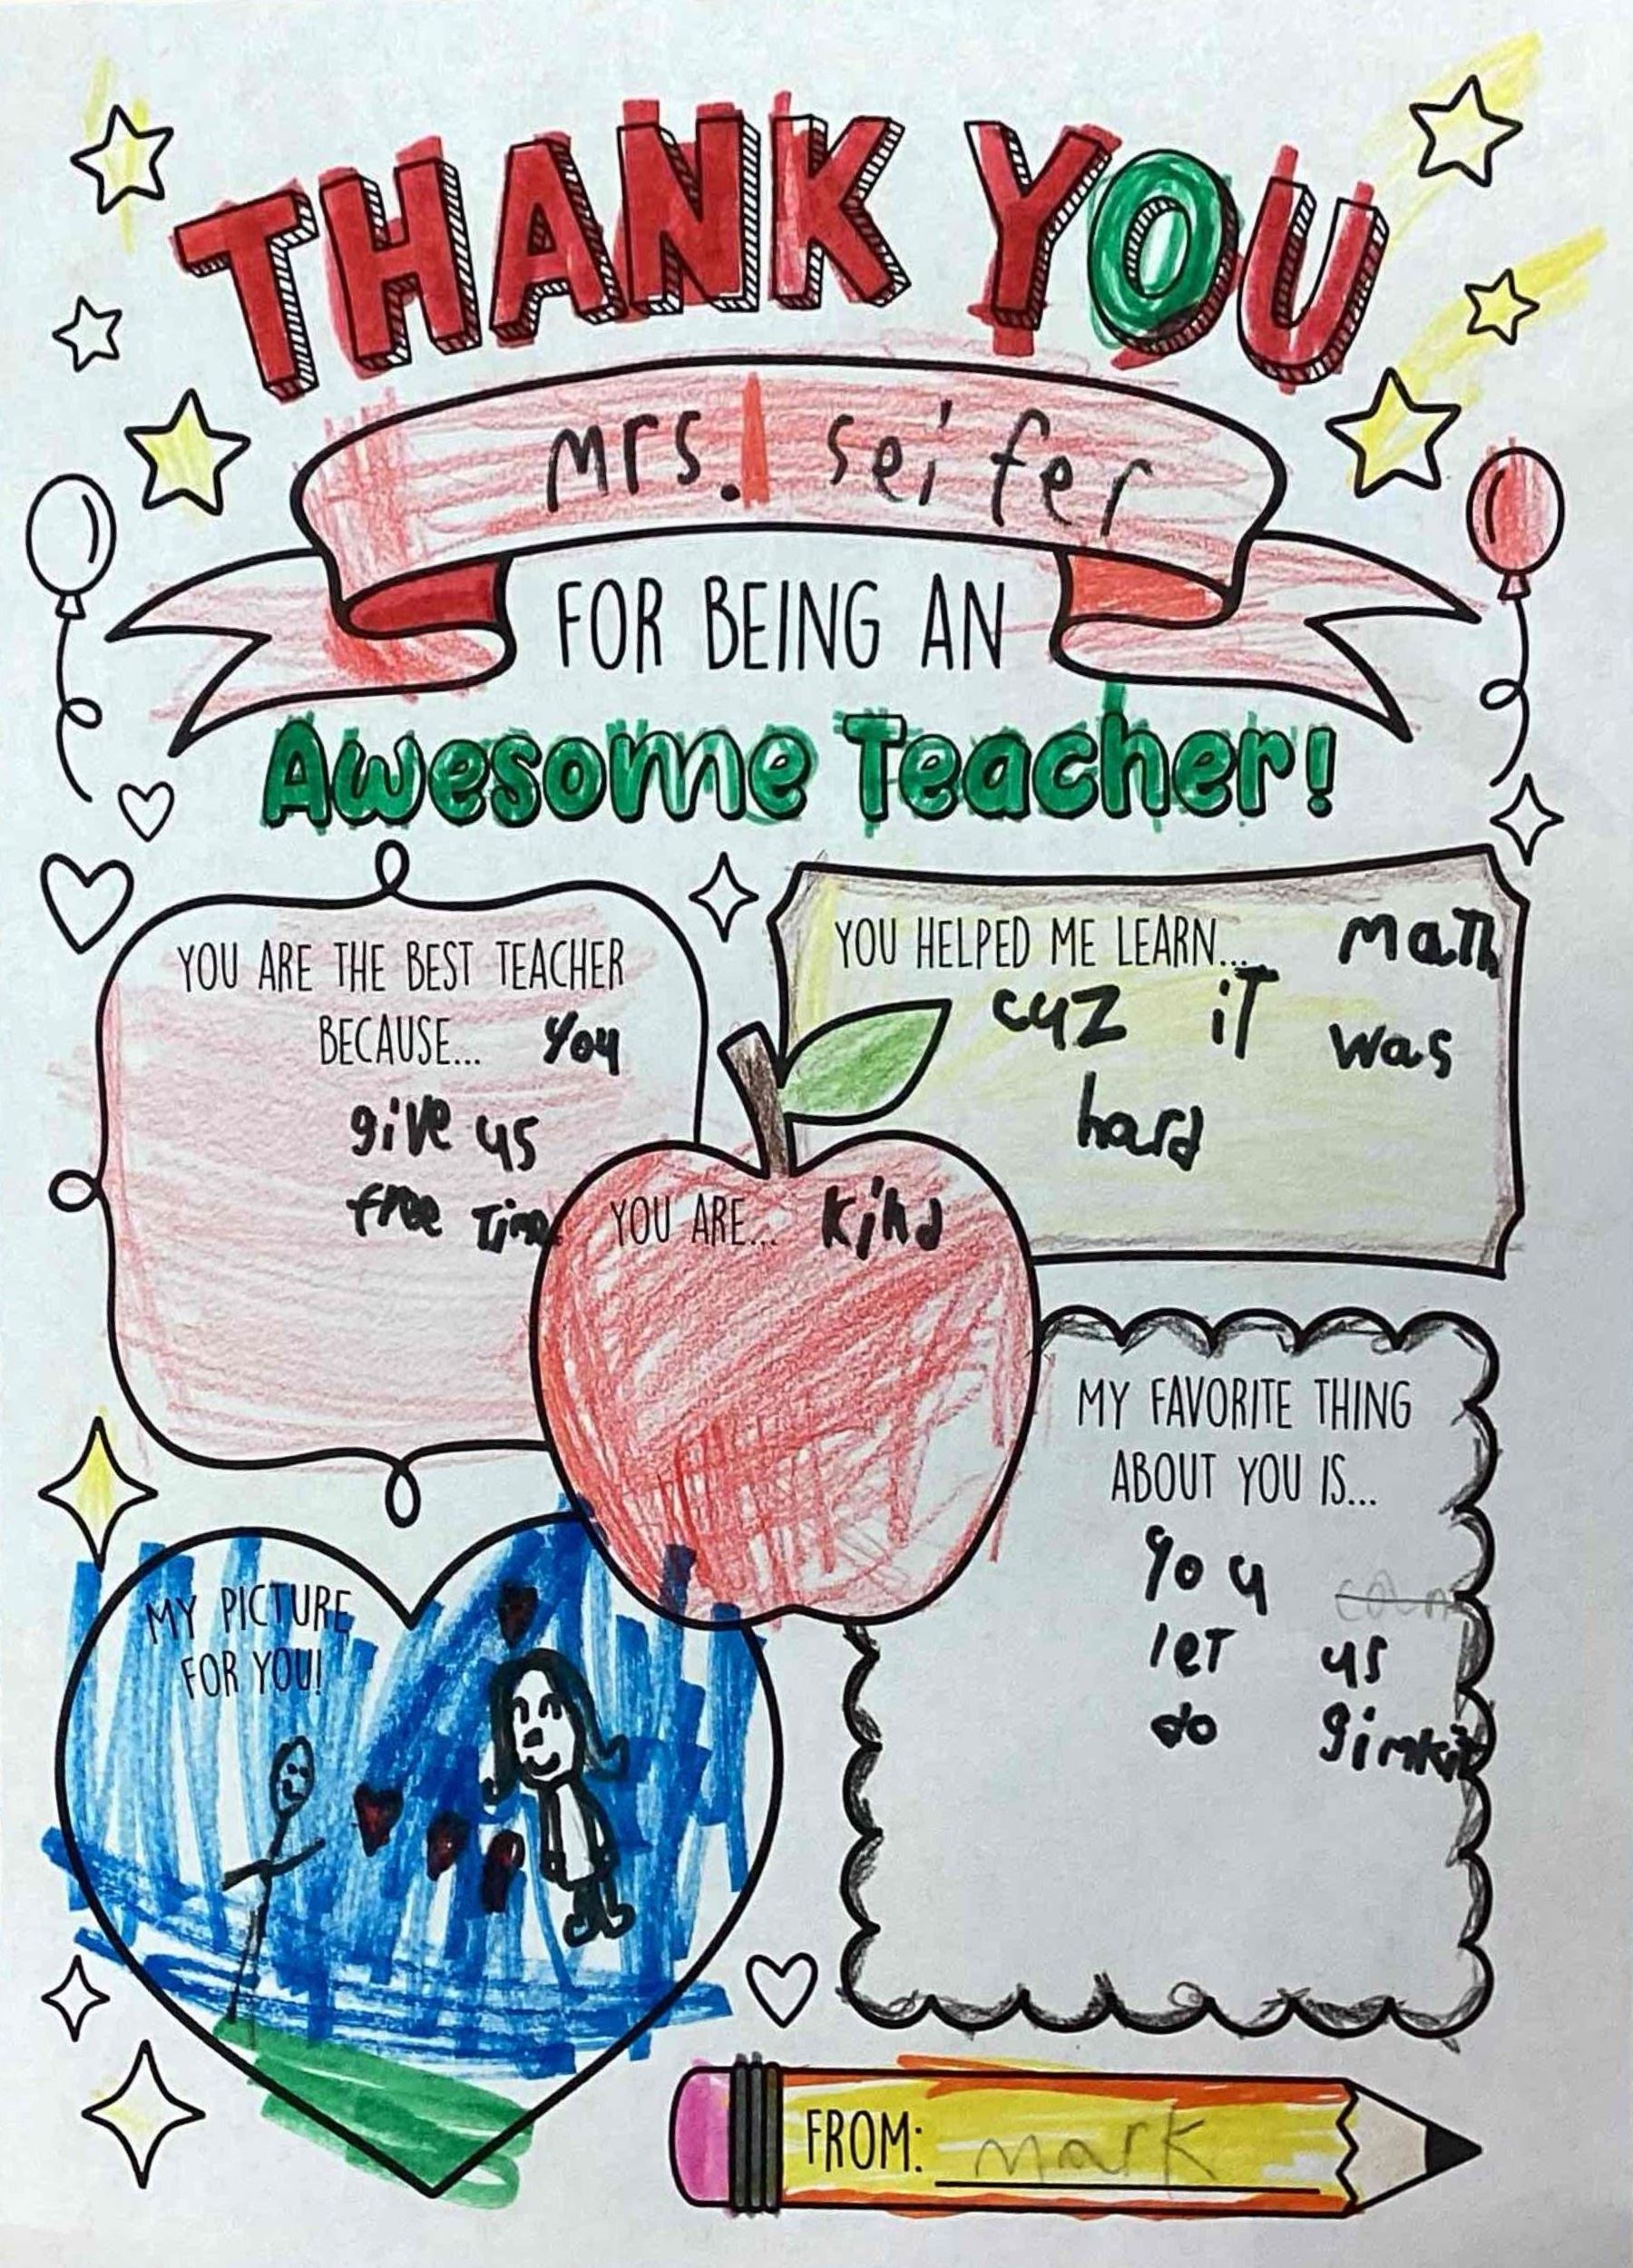 THANK YOU
mrs. seifer
FOR BEING AN
Awesome Teacher!
YOU ARE THE BEST TEACHER
BECAUSE... you
give us
free Time
YOU HELPED ME LEARN... maTh
cuz iT was
hard
YOU ARE... kind
MY FAVORITE THING
ABOUT YOU IS...
you
leT us
do gimkit
MY PICTURE
FOR YOU!
FROM: mark